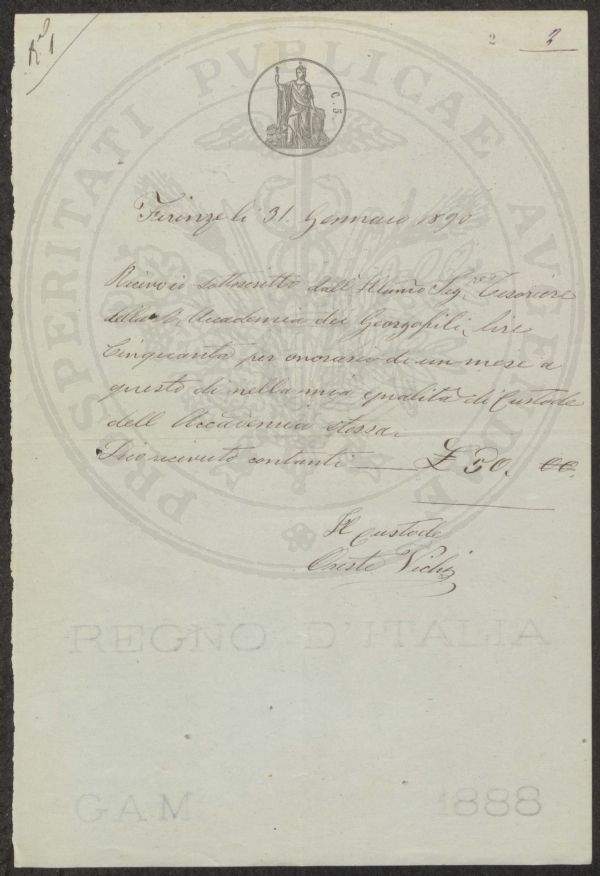 No 1
2 2
PROSPERITATI PUBLICAE AUGENDAE
C. 5.
Firenze li 31. Gennaio 1890
Ricevo io sottoscritto dall' Illmo Sigr Tesoriere
della R. Accademia dei Georgofili, lire
Cinquanta per onorario di un mese a
questo dì nella mia qualità di Custode
dell Accademia stessa.
Dico ricevuto contanti £ 50.
Il Custode
Oreste Vichi
REGNO D'ITALIA
GAM 1888